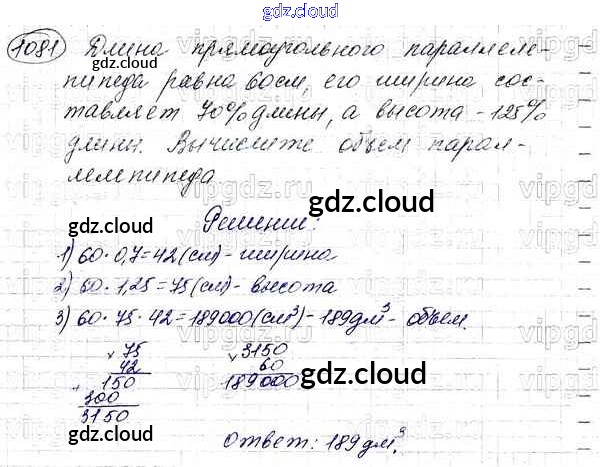 gdz.cloud
gdz.cloud
1081 Длина прямоугольного параллеле-
пипеда равна 60см, его ширина сос-
тавляет 70% длины, а высота - 125%
длины. Вычислите объем парал-
лелепипеда
vipgdz.ru
gdz.cloud
gdz.cloud
Решение:
1) 60·0,7=42(см)- ширина
2) 60·1,25=75(см)- высота
3) 60·75·42=189000(см³)-189дм³- объем.
×75
42
150
300
3150
×3150
60
189000
gdz.cloud
gdz.cloud
Ответ: 189дм³.